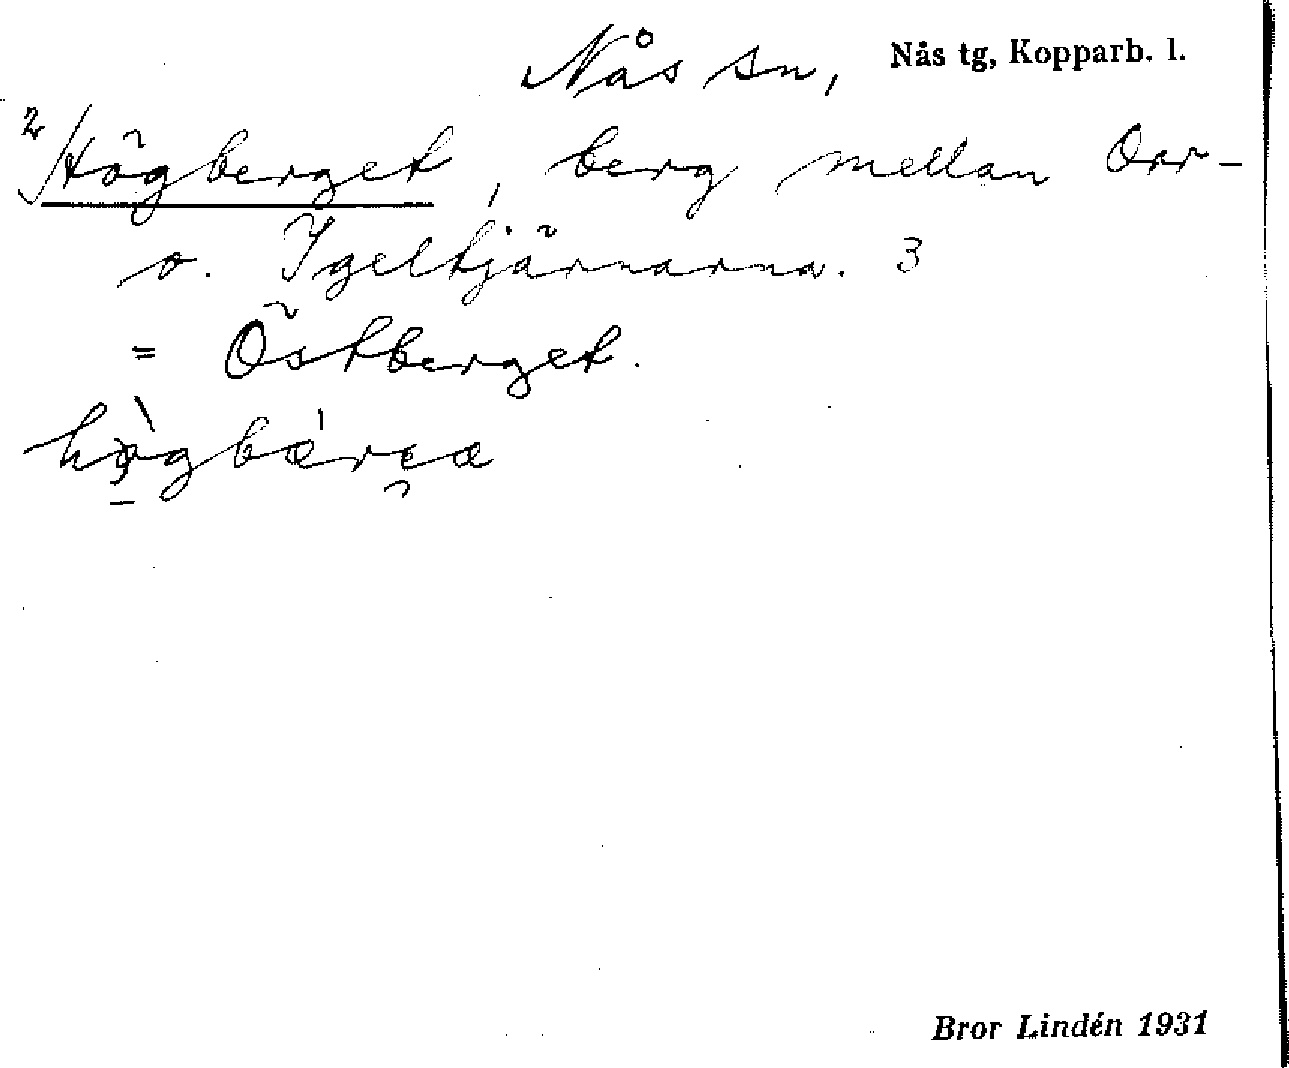 Nås sn, Nås tg, Kopparb. l.
2/Högberget, berg mellan Orr-
o. Igeltjärnarna. 3
= Östberget.
Bror Lindén 1931